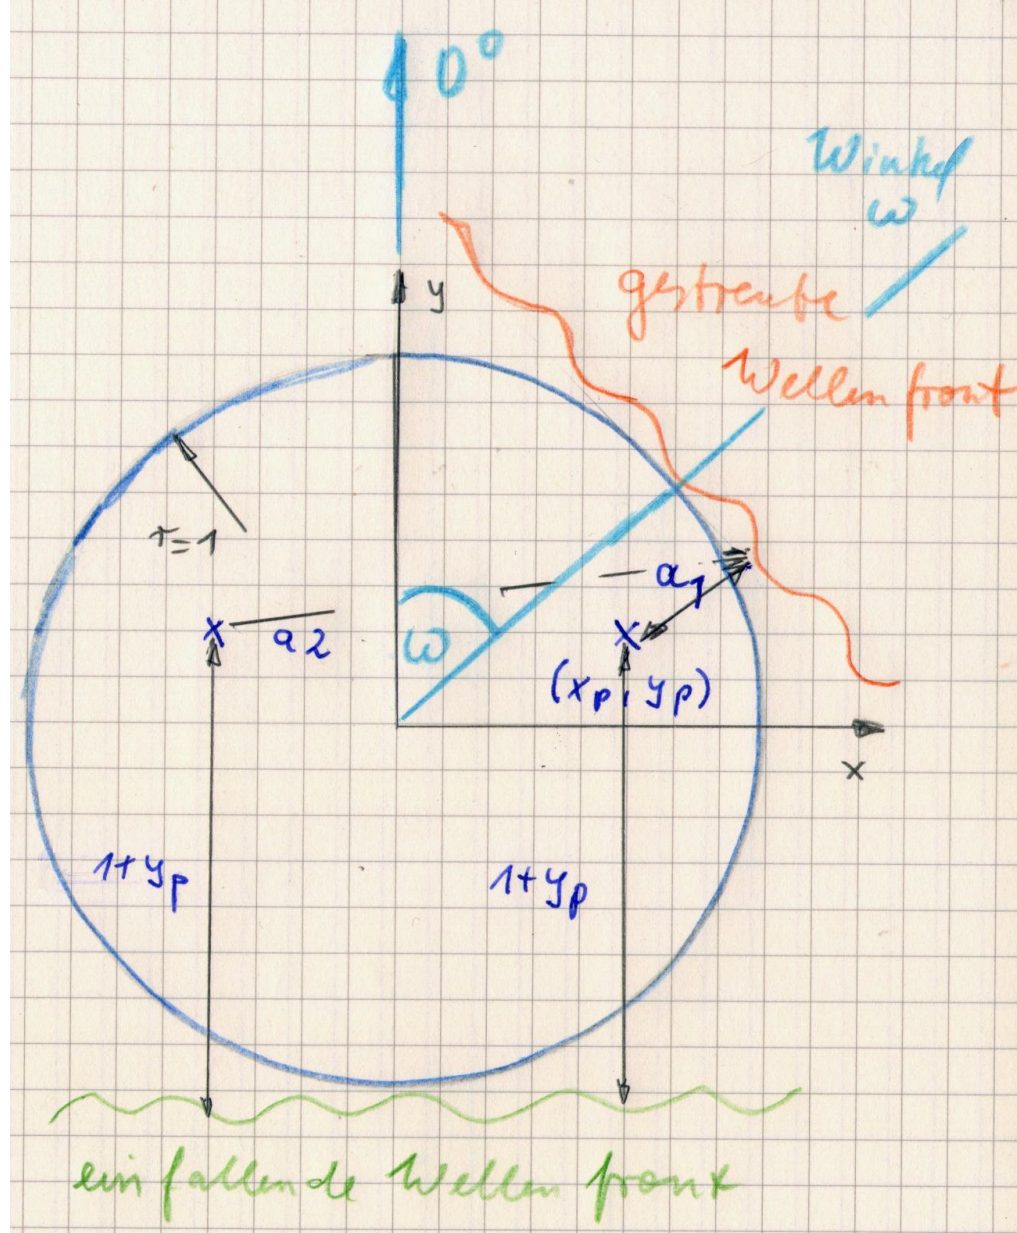 0°
Winkel
ω
y
gestreute
Wellenfront
r=1
a1
a2
ω
(xp, yp)
x
1+yp
1+yp
einfallende Wellenfront